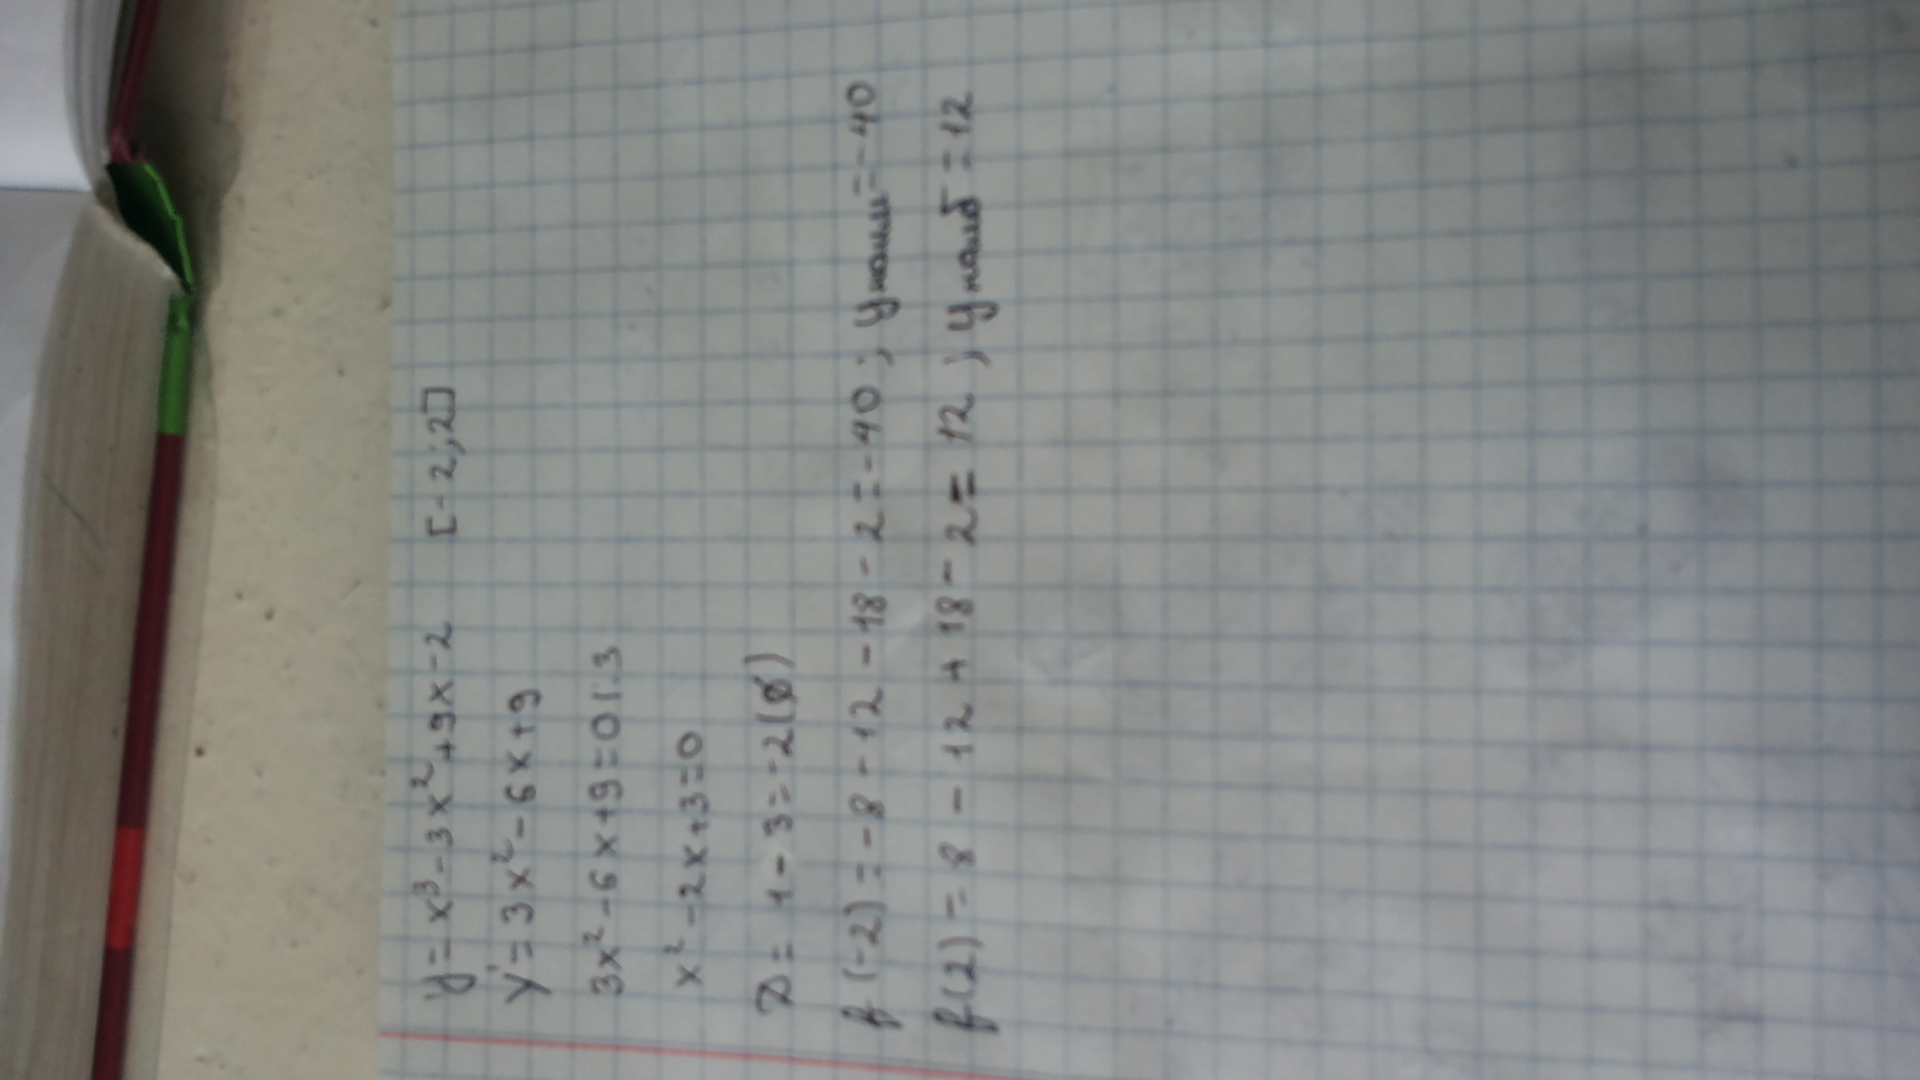 y = x³ - 3x² + 9x - 2 [-2; 2]
y' = 3x² - 6x + 9
3x² - 6x + 9 = 0 | :3
x² - 2x + 3 = 0
D = 1 - 3 = -2 (∅)
f(-2) = -8 - 12 - 18 - 2 = -40; y наим = -40
f(2) = 8 - 12 + 18 - 2 = 12; y наиб = 12